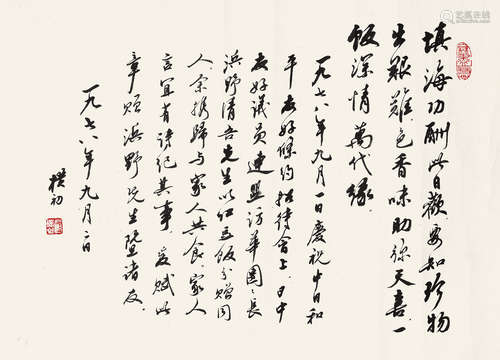 填海功酬此日歡要知珍物
出艱難色香味助弥天喜一
飯深情萬代緣
一九七八年九月一日慶祝中日和
平友好條約招待會上日中
友好議員連盟訪華團團長
浜野清吾先生以红豆飯分贈同
人余携歸与家人共食家人
言宜有詩紀其事爰賦此
章贈浜野先生暨諸友
一九七八年九月二日
樸初